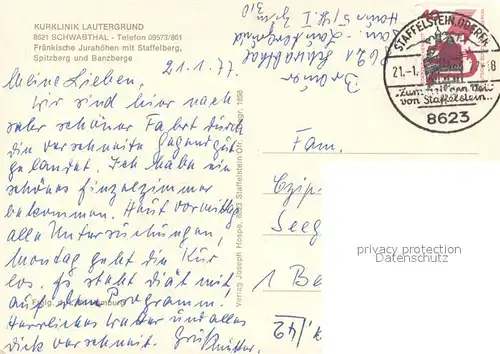 KURKLINIK LAUTERGRUND
8621 SCHWABTHAL - Telefon 09573/861
Fränkische Jurahöhen mit Staffelberg,
Spitzberg und Banzberge
21.1.77
Meine Lieben,
Wir sind hier nach
sehr schöner Fahrt durch
die verschneite Gegend gut
gelandet. Ich habe ein
schönes Einzelzimmer
bekommen. Heut vormittag
alle Untersuchungen,
Montag geht die Kur
los. Es steht diät mit
auf dem Programm.
Herrliches Wetter und alles
dick verschneit.
Verlag Joseph Hoppe, 8623 Staffelstein/Ofr.
1898
8621 Schwabthal
STAFFELSTEIN, OBERFR.
21.-1.
-8
"Zum heil'gen Veit
von Staffelstein..."
8623
Fam.
Seeg
1 Be
privacy protection
watermark
42/